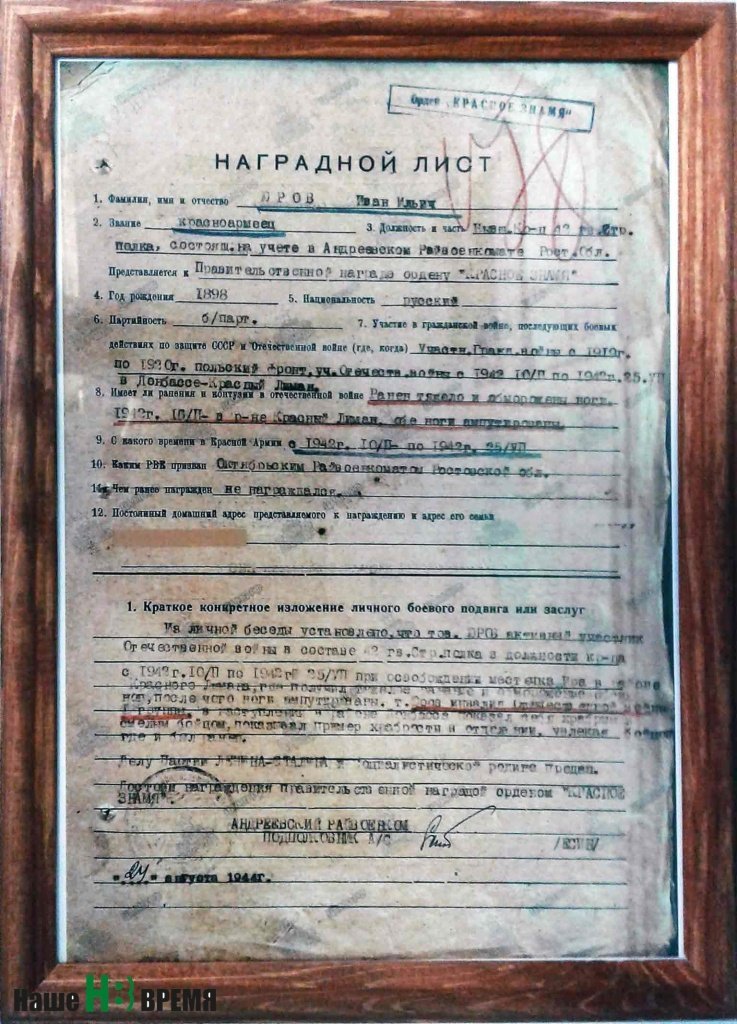 Орден „КРАСНОЕ ЗНАМЯ"
НАГРАДНОЙ ЛИСТ
1. Фамилия, имя и отчество ЮРОВ Иван Ильич
2. Звание красноармеец 3. Должность и часть Ком-р 42 гв.Стр.
полка, состоящ.на учете в Андреевском Райвоенкомате Рост.Обл.
Представляется к Правительственной награде ордену "КРАСНОЕ ЗНАМЯ"
4. Год рождения 1898 5. Национальность русский
6. Партийность б/парт. 7. Участие в гражданской войне, последующих боевых
действиях по защите СССР и Отечественной войне (где, когда) Участн.Гражд.войны с 1919г.
по 1920г. польский фронт,уч.Отечеств.войны с 1942 10/П по 1942г.25/УП
в Донбассе-Красный Лиман.
8. Имеет ли ранения и контузии в отечественной войне Ранен тяжело и обморожены ноги
1942г. 16/П- в р-не Красный Лиман, обе ноги ампутированы
9. С какого времени в Красной Армии с 1942г. 10/П- по 1942г. 25/УП
10. Каким РВК призван Октябрьским Райвоенкоматом Ростовской обл.
11. Чем ранее награжден не награждался.
12. Постоянный домашний адрес представляемого к награждению и адрес его семьи
1. Краткое конкретное изложение личного боевого подвига или заслуг
Из личной беседы установлено,что тов. ЮРОВ активный участник
Отечественной войны в составе 42 гв.Стр.полка в должности
с 1942г.10/П по 1942г 25/УП при освобождении местечка в районе
Красного Лимана,где получил тяжелое ранение и обморожение
ног,после чего ноги ампутированы. т. Юров инвалид Отечественной войны
I группы. в наступлении показал себя храбрым
смелым бойцом,показывал пример храбрости увлекая
где и был ранен.
Делу Партии ЛЕНИНА-СТАЛИНА и социалистической родине предан.
Достоин награждения правительственной наградой орденом "КРАСНОЕ
ЗНАМЯ".
АНДРЕЕВСКИЙ РАЙВОЕНКОМ
ПОДПОЛКОВНИК А/С
"24" августа 1944г.
Наше НВ ВРЕМЯ